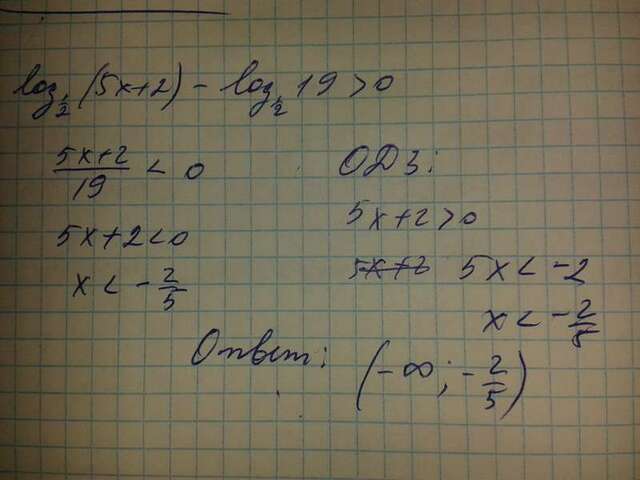 log½ (5x+2) - log½ 19 > 0
(5x+2)/19 < 0
5x+2<0
x < -2/5
ОДЗ:
5x+2>0
5x+2 5x < -2
x < -2/5
Ответ: (-∞; -2/5)